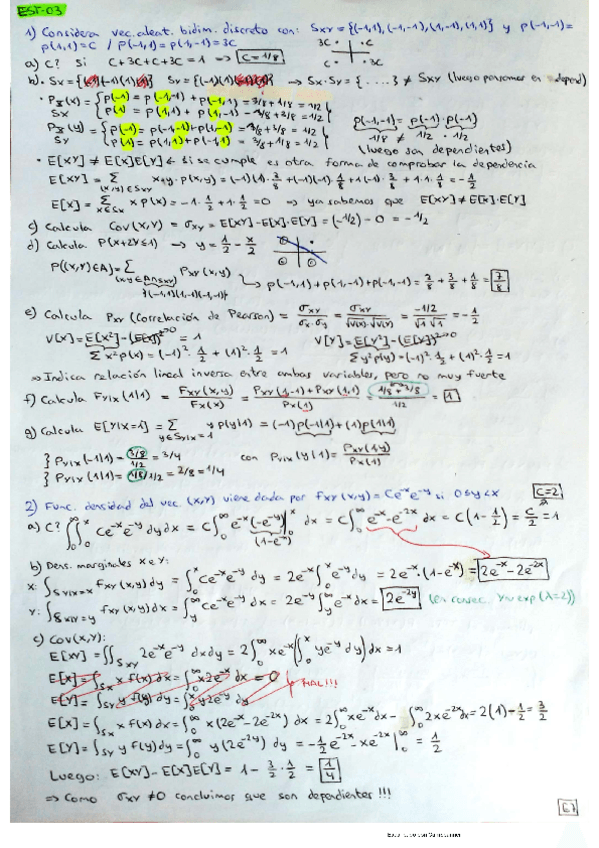 EST-03
1) Considera vec. aleat. bidim. discreto con: Sxy = {(-1,1), (-1,-1), (1,-1), (1,1)} y p(-1,-1)=
p(1,1)=C / p(-1,1)=p(1,-1)=3C
3C · | · C
C · | · 3C
a) C? Si C+3C+C+3C=1 → C=1/8
b). Sx={(-1)(1)} Sy={(-1)(1)} → Sx·Sy={.....} ≠ Sxy (luego pasamos en depend)
· Px(x) = { p(-1) = p(-1,-1) + p(-1,1) = 3/8+1/8 = 1/2
Sx { p(1) = p(1,1) + p(1,-1) = 1/8+3/8 = 1/2
Py(y) = { p(-1) = p(-1,-1)+p(1,-1) = 1/8+3/8 = 1/2
Sy { p(1) = p(1,1)+p(-1,1) = 3/8+1/8 = 1/2
p(-1,-1) = p(-1)·p(-1)
1/8 ≠ 1/2 · 1/2
(luego son dependientes)
· E[XY] ≠ E[X]E[Y] ← si se cumple es otra forma de comprobar la dependencia
E[XY] = Σ(x,y)∈Sxy x·y·p(x,y) = (-1)(1)·3/8+(-1)(-1)·1/8+1(-1)·3/8+1·1·1/8 = -1/2
E[X] = Σx∈Sx x p(x) = -1·1/2+1·1/2 = 0 → ya sabemos que E[XY] ≠ E[X]·E[Y]
c) Calcula Cov(X,Y) = σxy = E[XY]-E[X]·E[Y] = (-1/2) - 0 = -1/2
d) Calcula P(X+2Y≤1) → y = 1/2 - x/2
P((X,Y)∈A) = Σ(x,y)∈A∩Sxy Pxy(x,y) ↳ p(-1,1)+p(1,-1)+p(-1,-1) = 3/8 + 3/8 + 1/8 = 7/8
{(-1,1)(1,-1)(-1,-1)}
e) Calcula ρxy (Correlación de Pearson) = σxy/σx·σy = σxy/√V(X)·√V(Y) = -1/2/√1 √1 = -1/2
V[X] = E[X²]-(E[X])²→0 = 1 V[Y] = E[Y²]-(E[Y])²→0
Σx²p(x) = (-1)²·1/2+(1)²·1/2 = 1 Σy²p(y) = (-1)²·1/2+(1)²·1/2 = 1
⇒ Indica relación lineal inversa entre ambas variables, pero no muy fuerte
f) Calcula Fy|x(1|1) = Fxy(x,y)/Fx(x) = Pxy(1,-1)+Pxy(1,1)/Px(1) = 1/8+3/8/1/2 = 1
g) Calcula E[Y|X=1] = Σy∈Sy|x=1 y p(y|1) = (-1)p(-1|1)+(1)p(1|1)
} Py|x(-1|1) = 3/8/1/2 = 3/4 con Py|x(y|1) = Pxy(1,y)/Px(1)
} Py|x(1|1) = 1/8/1/2 = 2/8 = 1/4
2) Func. densidad del vec. (X,Y) viene dada por fxy(x,y) = Ce⁻ˣe⁻ʸ si 0≤y<x C=2
a) C? ∫₀^∞∫₀ˣ Ce⁻ˣe⁻ʸ dy dx = C∫₀^∞ e⁻ˣ(-e⁻ʸ)|₀ˣ dx = C∫₀^∞ e⁻ˣ-e⁻²ˣ dx = C(1-1/2) = C/2 = 1
(1-e⁻ˣ)
b) Dens. marginales X e Y:
X: ∫Sy|x=x fxy(x,y)dy = ∫₀ˣ Ce⁻ˣe⁻ʸdy = 2e⁻ˣ∫₀ˣ e⁻ʸdy = 2e⁻ˣ·(1-e⁻ˣ) = 2e⁻ˣ-2e⁻²ˣ
Y: ∫Sx|y=y fxy(x,y)dx = ∫y^∞ Ce⁻ˣe⁻ʸdx = 2e⁻ʸ∫y^∞ e⁻ˣdx = 2e⁻²ʸ (en consec. Y~exp(λ=2))
c) Cov(X,Y):
E[XY] = ∫∫Sxy 2e⁻ˣe⁻ʸ dxdy = 2∫₀^∞ xe⁻ˣ(∫₀ˣ ye⁻ʸdy)dx = 1
E[X] = ∫Sx x f(x)dx = ∫₀^∞ x2e⁻ˣ dx = 0
E[Y] = ∫Sy y f(y)dy = ∫ y2e⁻²ʸ dx → MAL!!!
E[X] = ∫Sx x f(x)dx = ∫₀^∞ x(2e⁻ˣ-2e⁻²ˣ) dx = 2∫₀^∞ xe⁻ˣdx - ∫₀^∞ 2xe⁻²ˣdx = 2(1)-1/2 = 3/2
E[Y] = ∫Sy y f(y)dy = ∫₀^∞ y(2e⁻²ʸ) dy = -1/2e⁻²ˣ-xe⁻²ˣ|₀^∞ = 1/2
Luego: E[XY]-E[X]E[Y] = 1 - 3/2·1/2 = 1/4
⇒ Como σxy ≠ 0 concluimos que son dependientes!!!